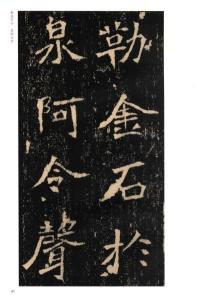 勒金石於
泉阿令聲